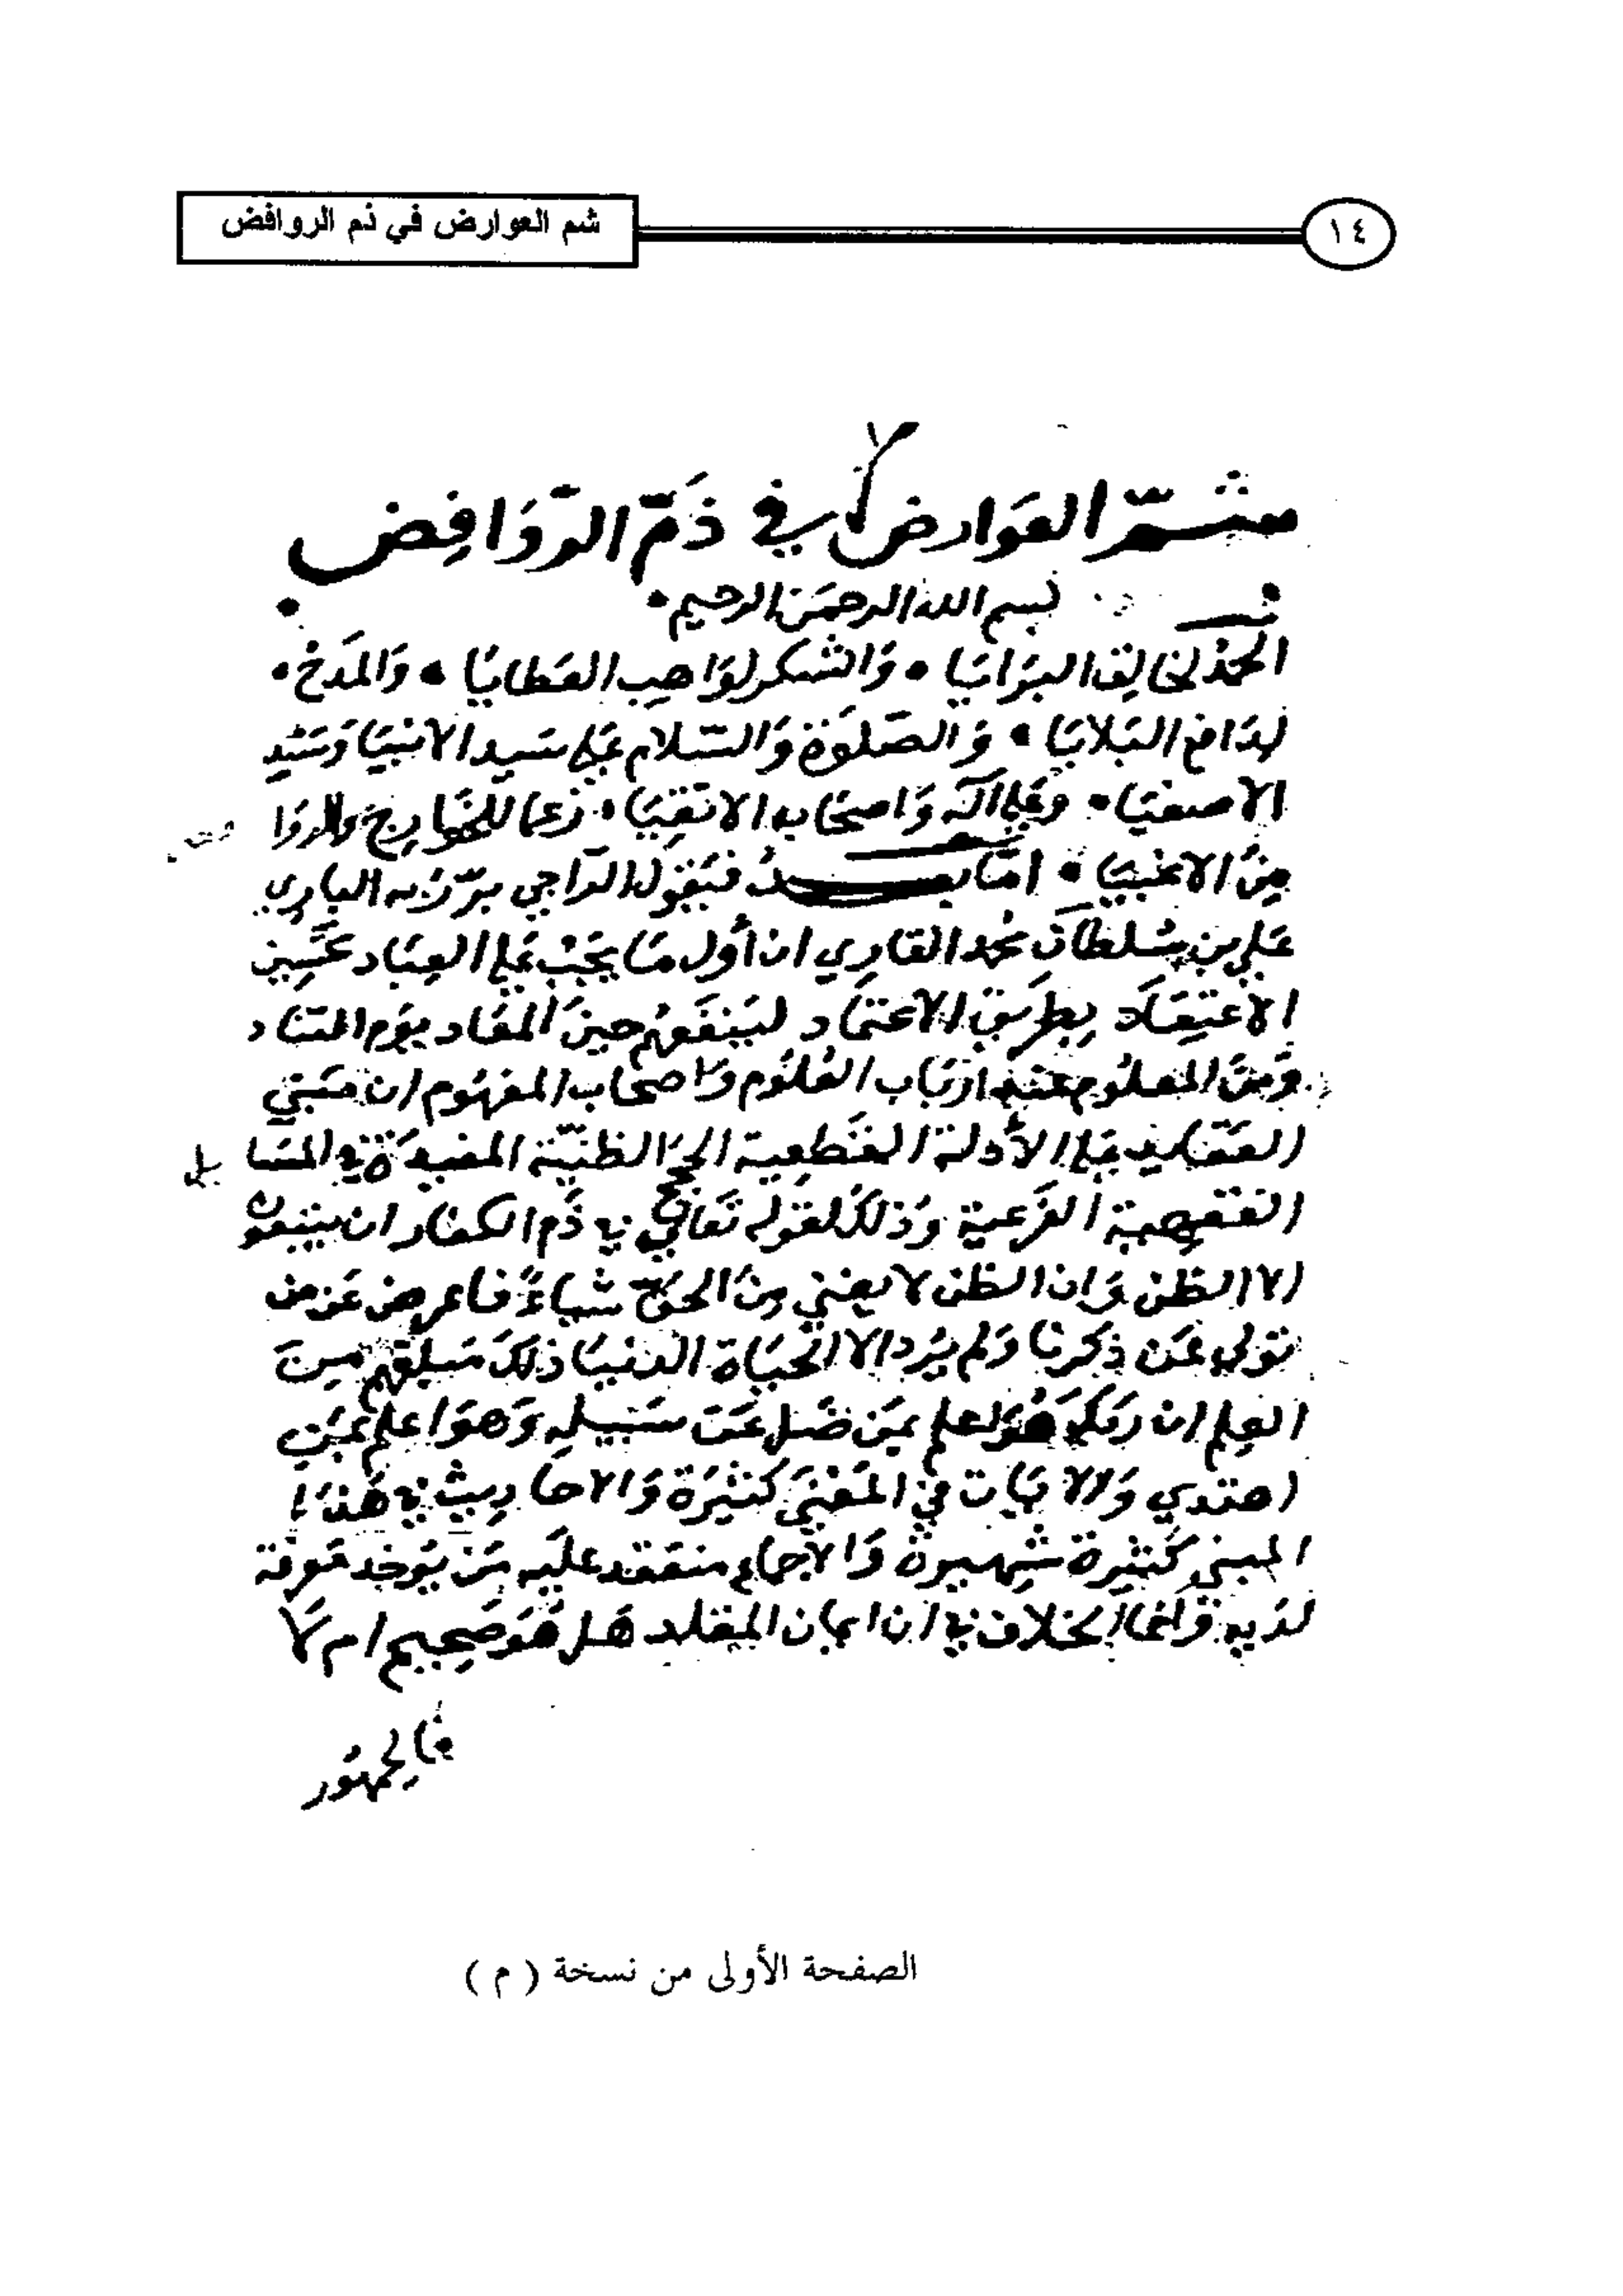 ١٤
شم العوارض في ذم الروافض
شمّ العوارض في ذَمّ الرّوَافِض
بسم الله الرحمن الرحيم
الحمد لخالق البرايا • وَالشكر لوَاهب العطايا • وَالمدح •
لدَافع البَلايَا • وَالصّلوَة وَالسّلام على سَيد الانبيَا وَسَنَد
الاصفيَا • وَعلى آله وَاصحَابه الاتقيَا • رغما للخوَارج والروَا
فض
مِنَ الاغبيَا • امّا بعد فيَقول الرّاجي برّ رَبه الباري
عَلي بن سُلطان محمد القاري ان أول مَا يجب عَلى العبَاد تحسِين
الاعتِقَاد بِطرَيق الاعتمَاد ليَنفعَهم حِينَ المعَاد يوَم التنَاد
وَمنَ المعلوُم عند ارَباب العُلوُم وَاصحاب المفهوُم ان مَبَني
العَقَايد عَلى الأدلة القَطعية لا الظنيّة المفيدَة في المسَا
يل
الفقهية الفَرعية وَذلكَ لقوله تعَالى في ذَم الكفار ان يتبعون
الا الظن وَان الظن لا يغني مِنَ الحَق شيئاً فاعرض عَن من
توَلى عَن ذِكرنا وَلم يُرد الا الحَيَاة الدنيَا ذَلكَ مَبلغهم مِنَ
العِلم ان رَبكَ هُوَ اعلم بمَن ضَل عَن سَبيله وَهوَ اعلم بمَن
اهتدي وَالايَات في المَعْنَى كَثيرَة وَالاحَاديث في هَذا
المبني كَثيرة شهيرة وَالاجماع منعَقد عليَه مَن يوُخذ مَعرفة
لدَيه وَانما الخلاف في ان ايمان المقلد هَل هُوَ صَحِيح ام لا
فالجمهوُر
الصفحة الأولى من نسخة ( م )